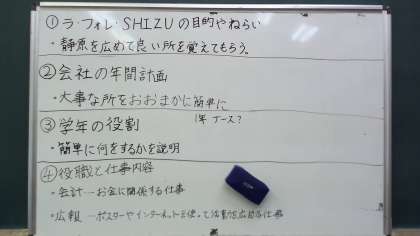 ①ラ・フォレ・SHIZUの目的やねらい
・静原を広めて良い所を覚えてもらう。
②会社の年間計画
・大事な所をおおまかに簡単に
③学年の役割
1年 ブース?
・簡単に何をするかを説明
④役職と仕事内容
・会計…お金に関係する仕事
・広報…ポスターやインターネットを使って活動を広める仕事